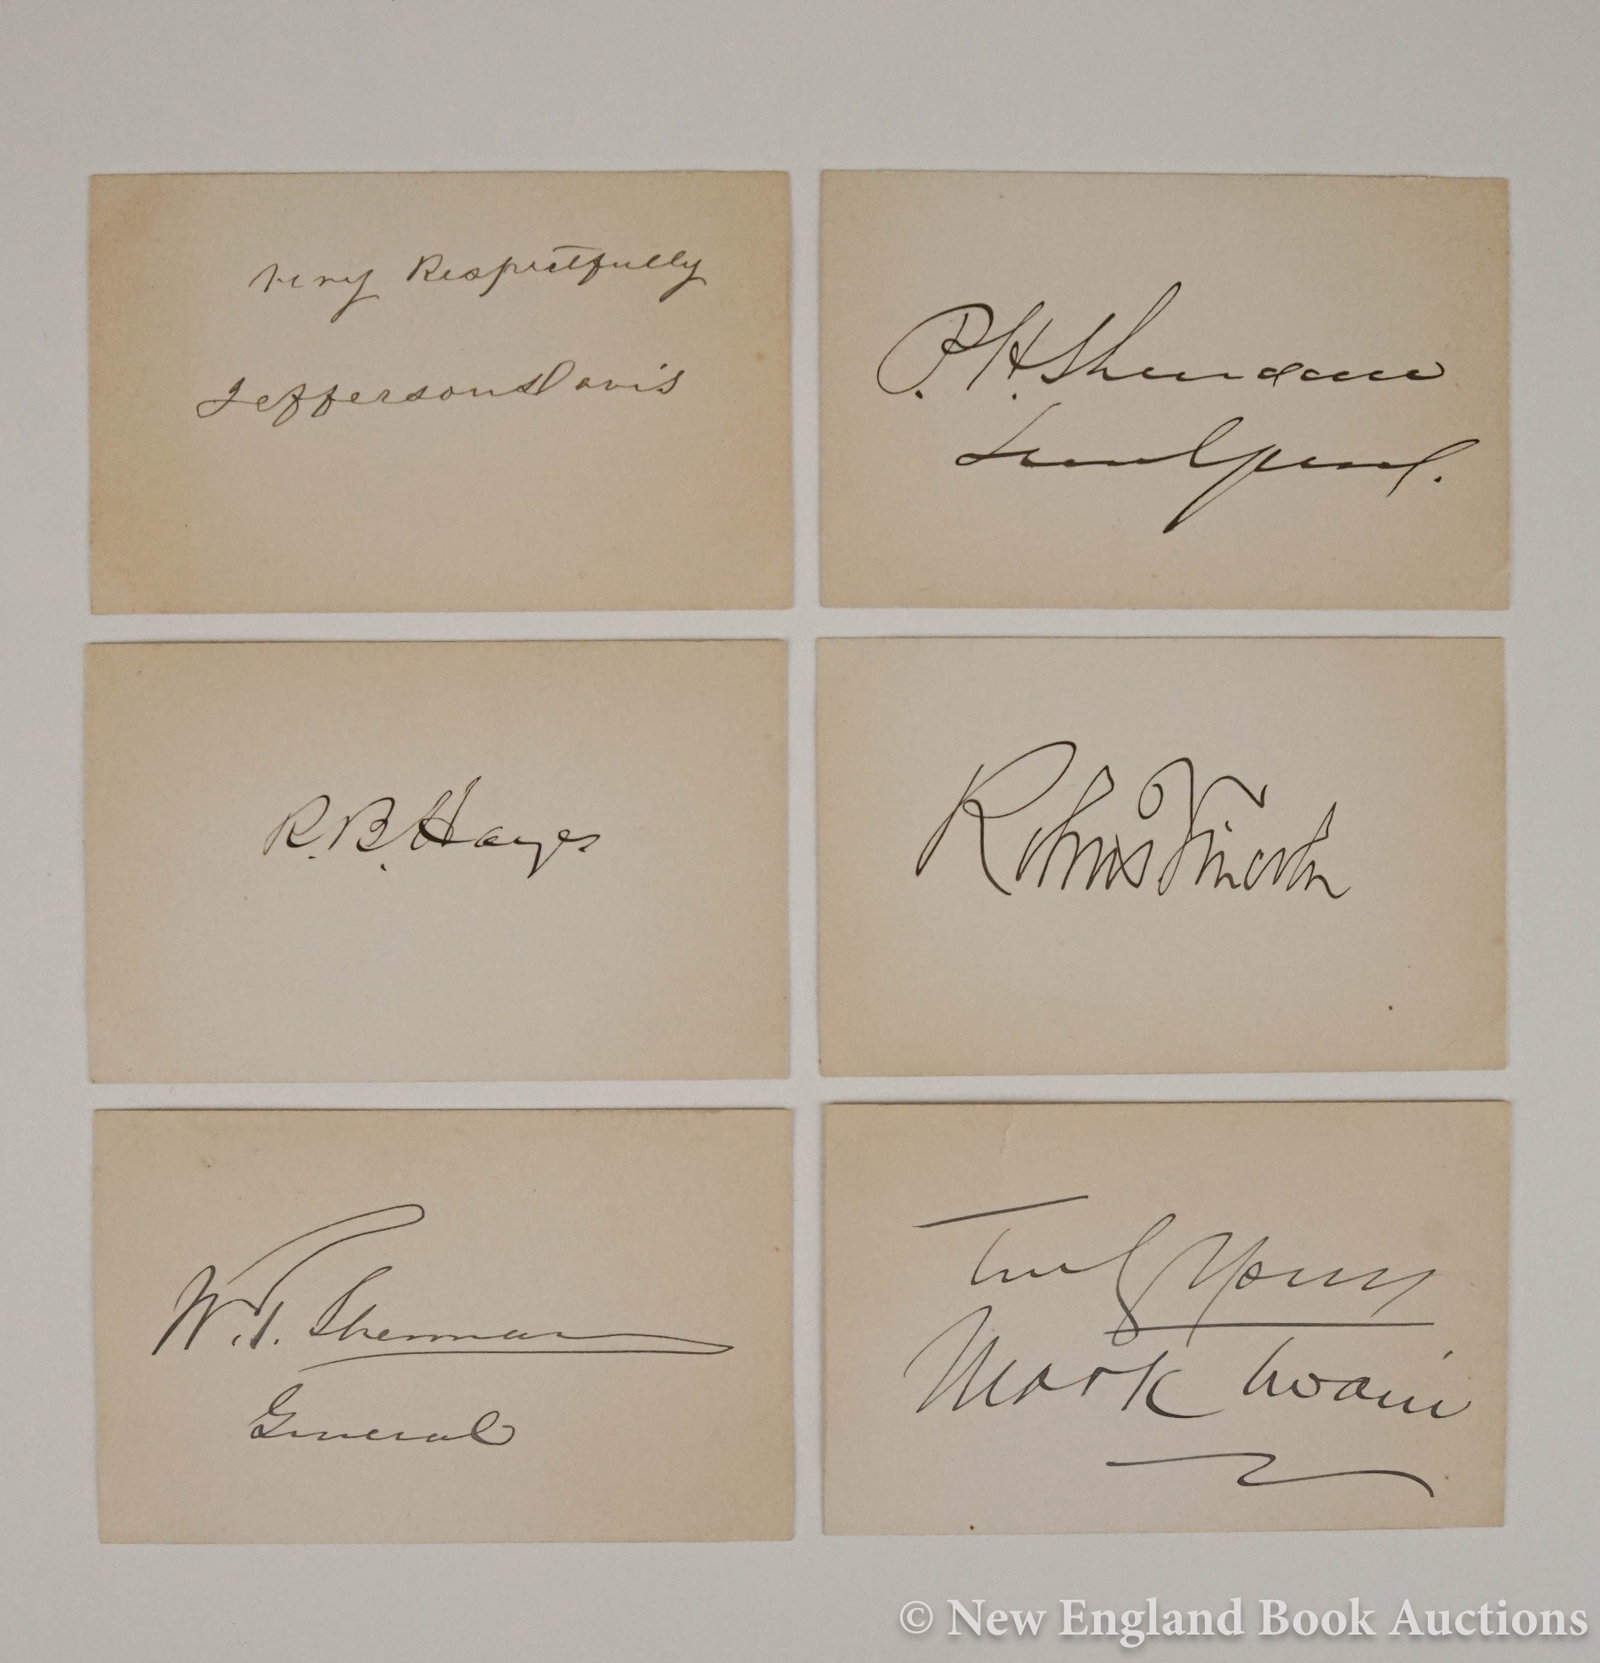 Very Respectfully
Jefferson Davis
P. H. Sheridan
Lieut General.
R. B. Hayes
Robert T. Lincoln
W. T. Sherman
General
Truly Yours
Mark Twain
© New England Book Auctions